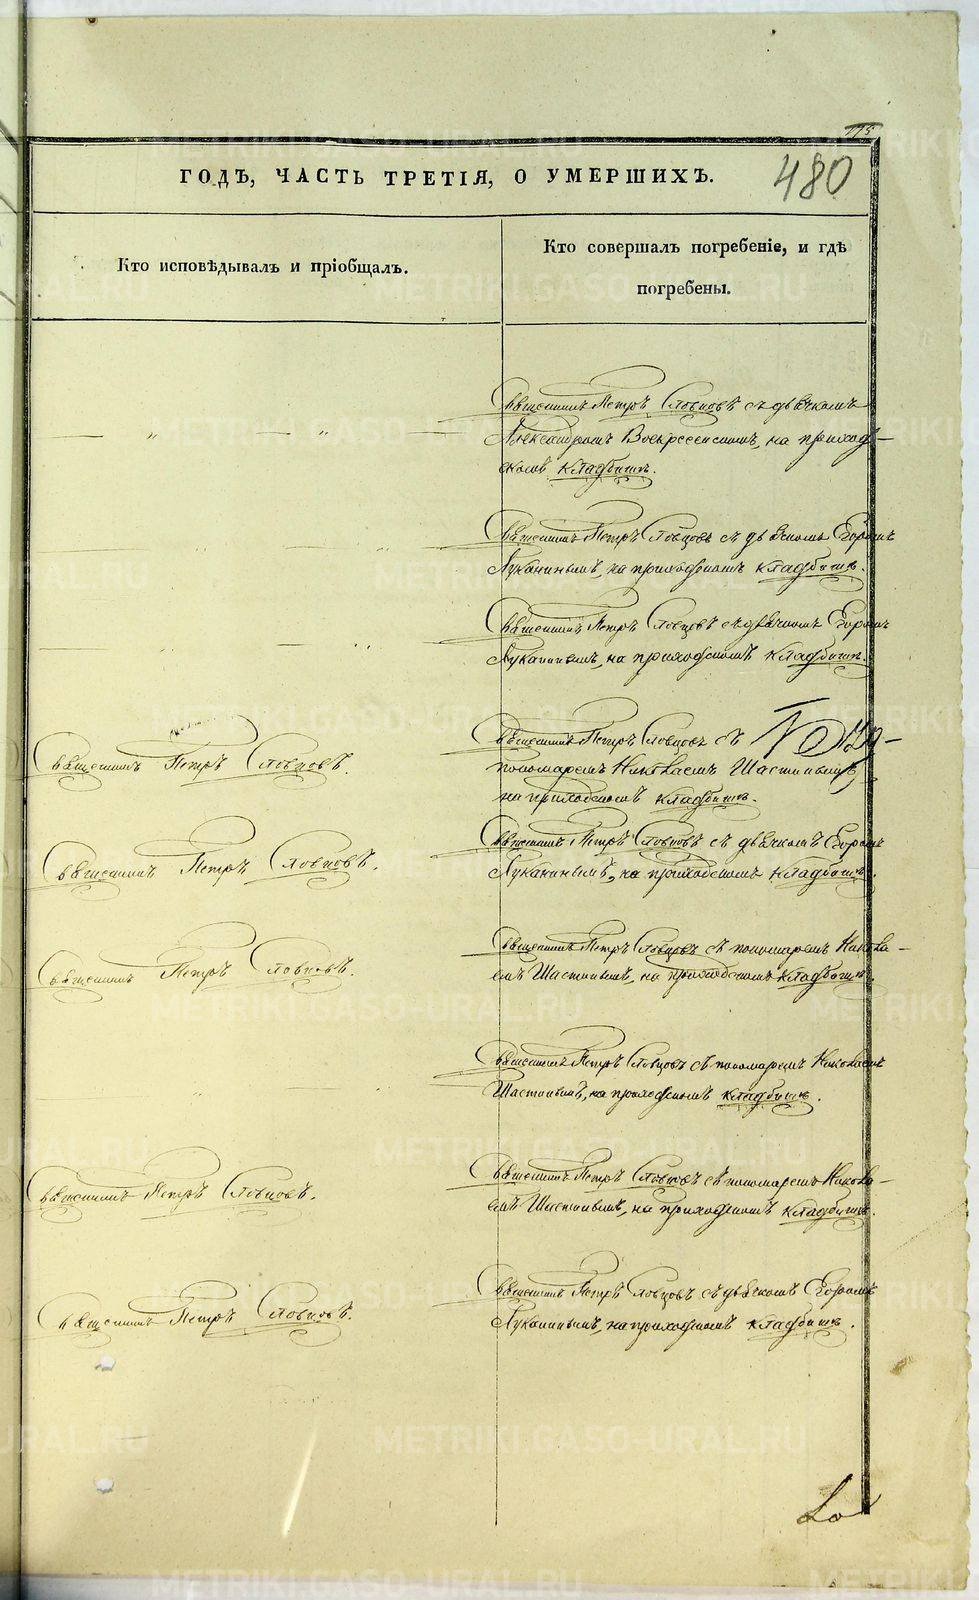 775
ГОДЪ, ЧАСТЬ ТРЕТІЯ, О УМЕРШИХЪ.
480
Кто исповѣдывалъ и пріобщалъ.
Кто совершалъ погребеніе, и гдѣ
погребены.
Священникъ Петръ Словцовъ съ дьячкомъ
— „ — „ —
Александромъ Воскресенскимъ, на приход-
скомъ кладбищѣ.
Священникъ Петръ Словцовъ съ дьячкомъ Егоромъ
Луканинымъ, на приходскомъ кладбищѣ.
Священникъ Петръ Словцовъ съ дьячкомъ Егоромъ
Луканинымъ, на приходскомъ кладбищѣ.
Священникъ Петръ Словцовъ.
Священникъ Петръ Словцовъ съ
пономаремъ Николаемъ Шастинымъ,
на приходскомъ кладбищѣ.
Священникъ Петръ Словцовъ.
Священникъ Петръ Словцовъ съ дьячкомъ Егоромъ
Луканинымъ, на приходскомъ кладбищѣ.
Священникъ Петръ Словцовъ.
Священникъ Петръ Словцовъ съ пономаремъ Никола-
емъ Шастинымъ, на приходскомъ кладбищѣ.
Священникъ Петръ Словцовъ съ пономаремъ Николаемъ
Шастинымъ, на приходскомъ кладбищѣ.
Священникъ Петръ Словцовъ.
Священникъ Петръ Словцовъ съ пономаремъ Никола-
емъ Шастинымъ, на приходскомъ кладбищѣ.
Священникъ Петръ Словцовъ.
Священникъ Петръ Словцовъ съ дьячкомъ Егоромъ
Луканинымъ, на приходскомъ кладбищѣ.
METRIKI.GASO-URAL.RU